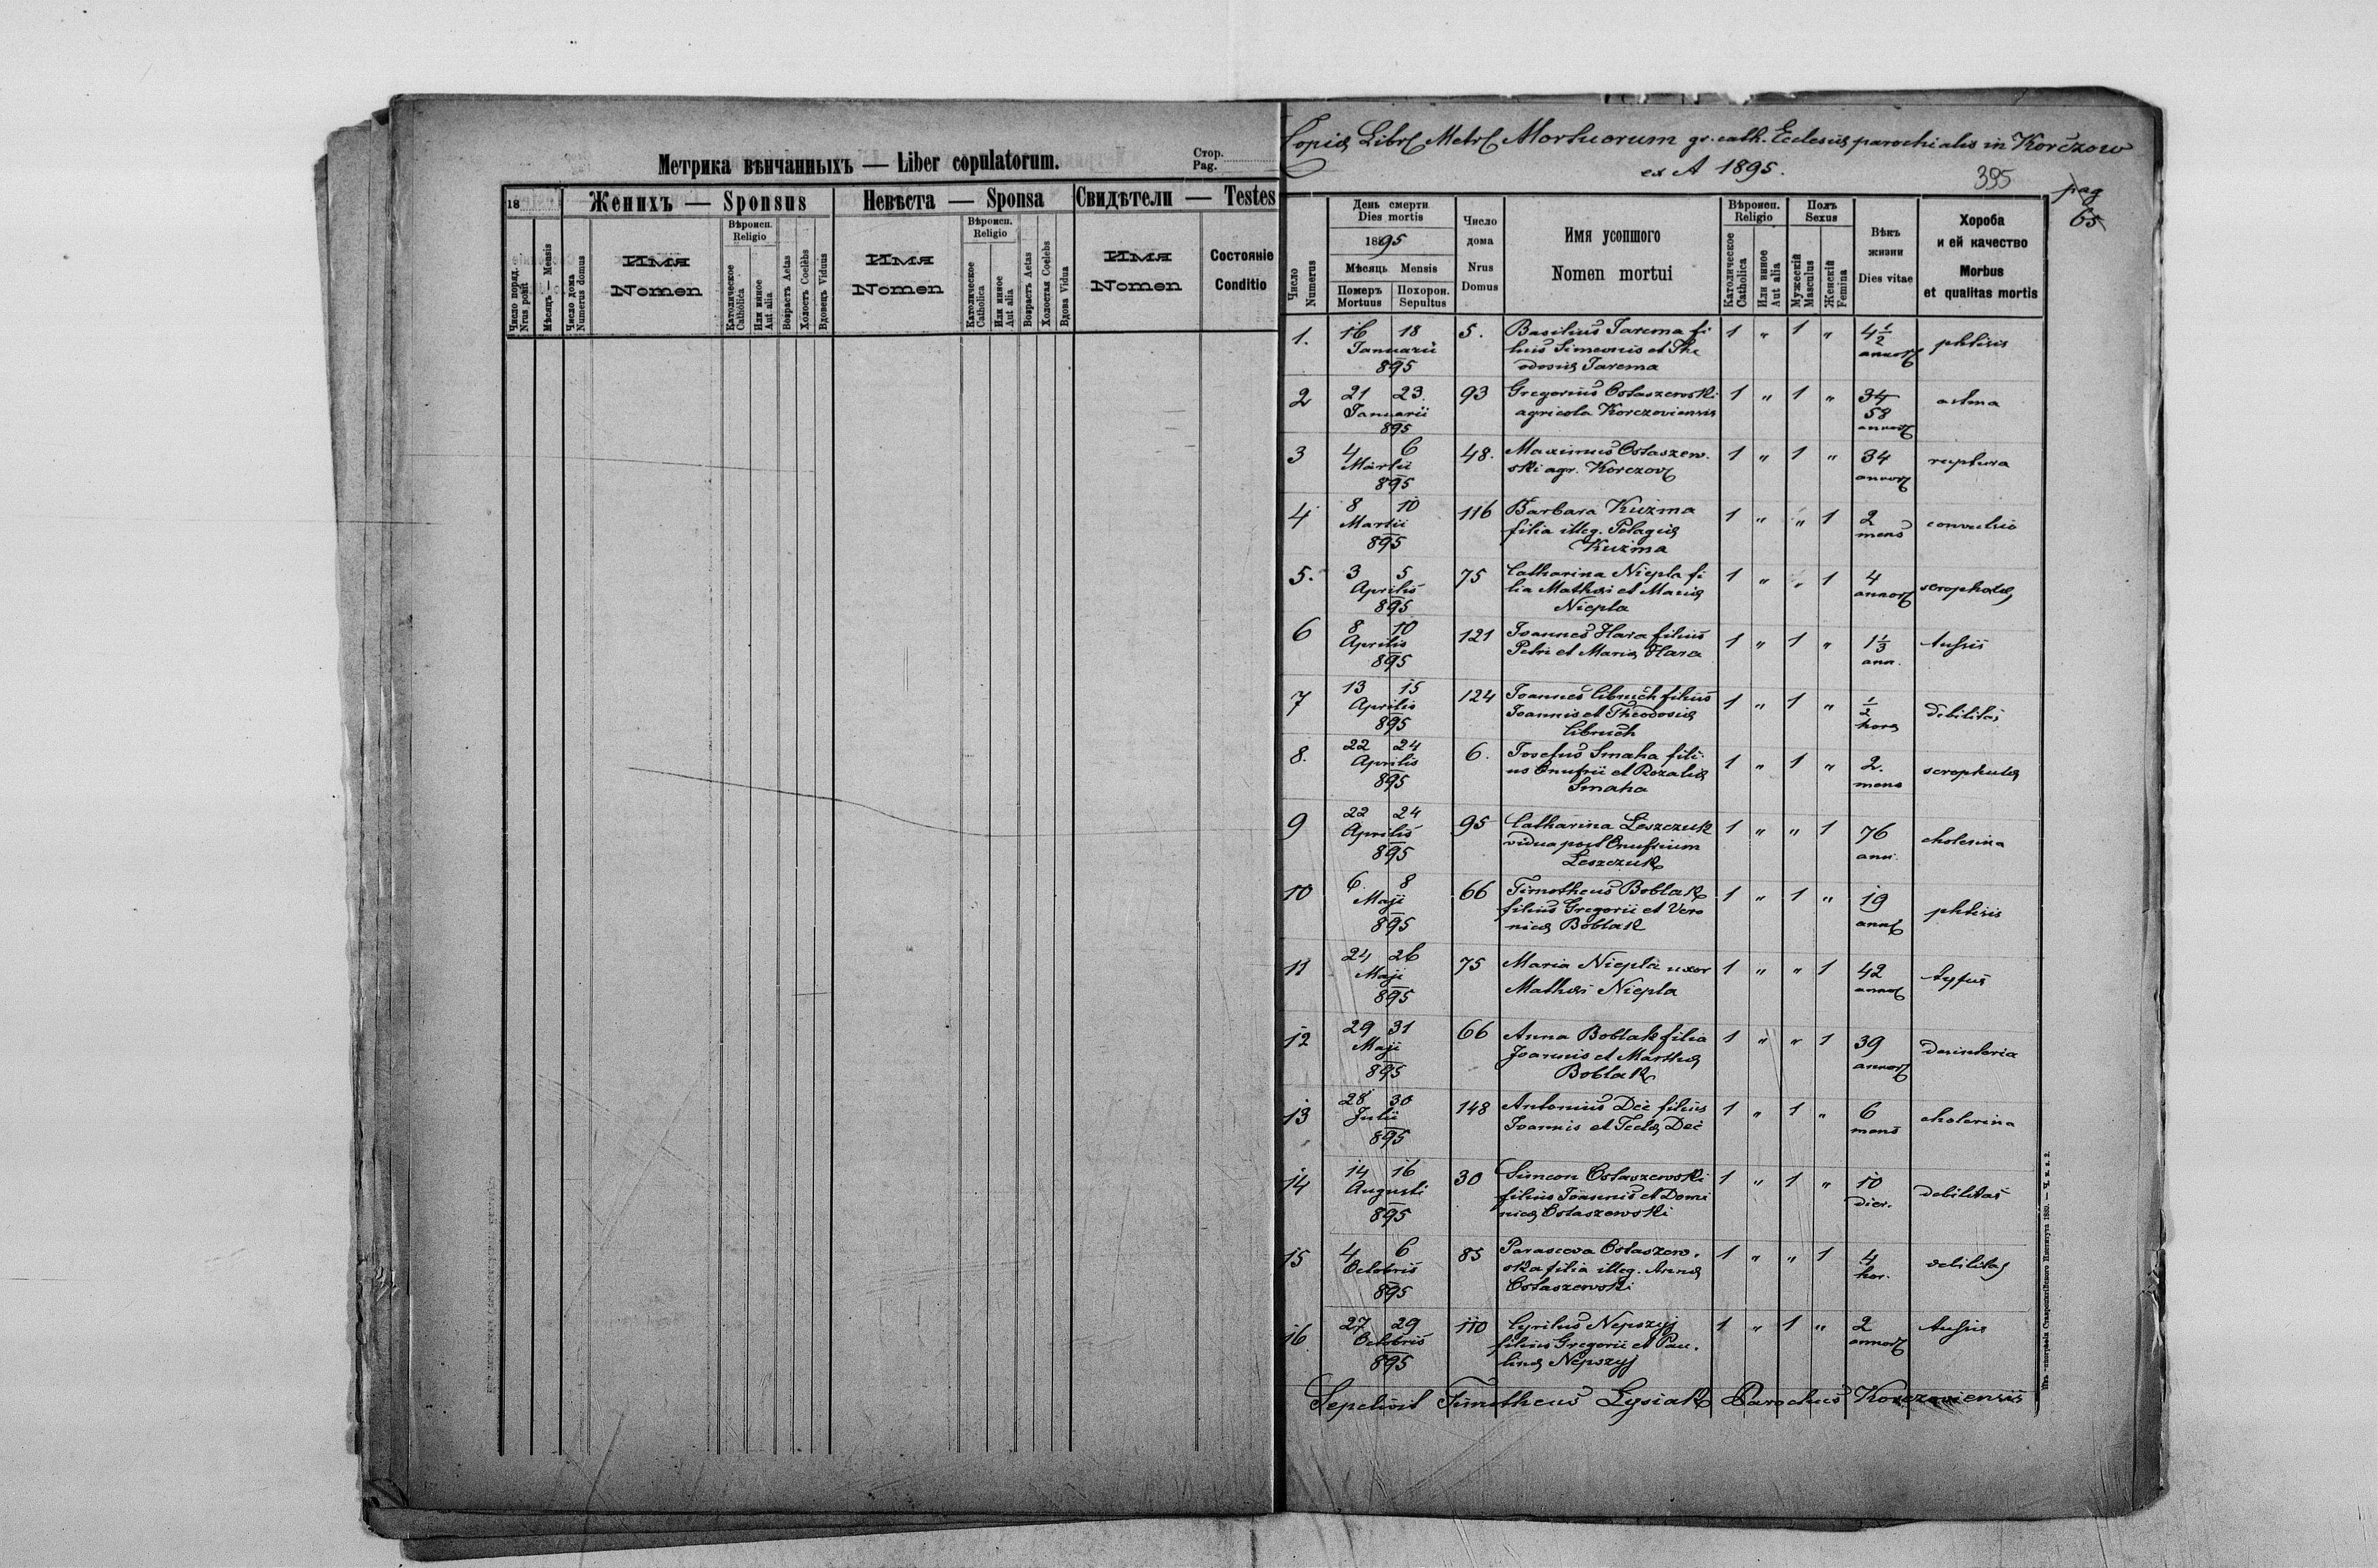 Метрика вѣнчанныхъ — Liber copulatorum.
Стор.
Pag.
18
Женихъ — Sponsus
Невѣста — Sponsa
Свидѣтели — Testes
Число поряд.
Nrus posit
Мѣсяцъ — Mensis
Число дома
Numerus domus
Имя
Nomen
Вѣроисп.
Religio
Католическое
Catholica
Или иное
Aut alia
Возрастъ Aetas
Холостъ Coelèbs
Вдовецъ Viduus
Имя
Nomen
Вѣроисп.
Religio
Католическое
Catholica
Или иное
Aut alia
Возрастъ Aetas
Холостая Coelebs
Вдова Vidua
Имя
Nomen
Состояніе
Conditio
Copia Libr. Metr. Mortuorum gr. cath. Ecclesiæ parochialis in Korczow
ex A 1895.
395
pag
65
Число
Numerus
День смерти
Dies mortis
1895
Мѣсяць Mensis
Померъ
Mortuus
Похорон.
Sepultus
Число
дома
Nrus
Domus
Имя усопшого
Nomen mortui
Вѣроисп.
Religio
Католическое
Catholica
Или иное
Aut alia
Полъ
Sexus
Мужескій
Masculus
Женскій
Femina
Вѣкъ
жизни
Dies vitae
Хороба
и ей качество
Morbus
et qualitas mortis
1. 16 18 5. Basilius Jarema fi 1 " 1 " 4½ phtisis
Januarii lius Simeonis et The annor.
895 odosiæ Jarema
2 21 23. 93 Gregorius Ostaszewski 1 " 1 " 34 astma
Januarii agricola Korczoviensis 58
895 annor.
3 4 6 48. Maximus Ostaszew. 1 " 1 " 34 ruptura
Martii ski agr. Korczov. annor.
895
4 8 10 116 Barbara Kuźma 1 " " 1 2 convulsio
Martii filia illeg. Pelagiæ mens
895 Kuźma
5. 3 5 75 Catharina Niepla fi 1 " " 1 4 scrophulæ
Aprilis lia Mathæi et Mariæ annor.
895 Niepla
6 8 10 121 Joannes Hara filius 1 " 1 " 1⅓ tussis
Aprilis Petri et Mariæ Hara ann.
895
7 13 15 124 Joannes Cibruch filius 1 " 1 " ½ debilitas
Aprilis Joannis et Theodosiæ horæ
895 Cibruch
8. 22 24 6. Josefus Smaha fili 1 " 1 " 2. scrophulæ
Aprilis us Onufrii et Rozaliæ mens
895 Smaha
9 22 24 95 Catharina Leszczuk 1 " " 1 76 cholerina
Aprilis vidua post Onufrium ann.
895 Leszczuk
10 6. 8 66 Timotheus Boblak 1 " 1 " 19 phtisis
Maji filius Gregorii et Vero ann.
895 nicæ Boblak
11 24 26 75 Maria Niepla uxor 1 " " 1 42 tyfus
Maji Mathæi Niepla annor.
895
12 29 31 66 Anna Boblak filia 1 " " 1 39 desinteria
Maji Joannis et Marthæ annor.
895 Boblak
13 28 30 148 Antonius Deć filius 1 " 1 " 6 cholerina
Julii Joannis et Teclæ Deć mens
895
14 14 16 30 Simeon Ostaszewski 1 " 1 " 10 debilitas
Augusti filius Joannis et Domi dier.
895 nicæ Ostaszewski
15 4 6 85 Parasceva Ostaszew. 1 " " 1 4 debilitas
Octobris ska filia illeg. Annæ hor.
895 Ostaszewski
16 27 29 110 Cyrilus Nepszyj 1 " 1 " 2 tussis
Octobris filius Gregorii et Pau. annor.
895 linæ Nepszyj
Sepelivit Timotheus Lysiak Parochus Korczoviensis
Ставропигійского Института 1889. — Ч. н. а. 2.